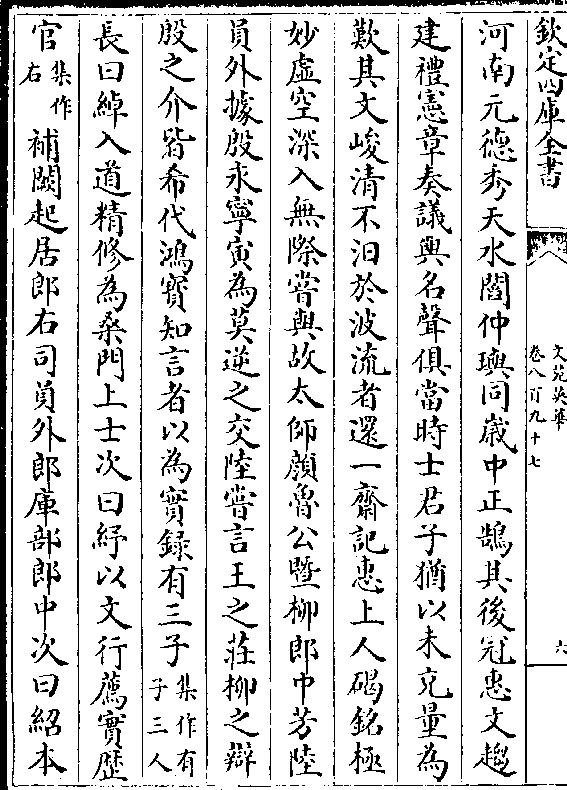 欽定四庫全書
文苑英華
卷八百九十七
六
河南元德秀天水閻仲璵同歲中正鵠其後冠惠文趨
建禮憲章奏議與名聲俱當時士君子猶以未克量為
歎其文峻清不汩於波流者還一齋記惠上人碣銘極
妙虚空深入無際嘗與故太師顔魯公暨柳郎中芳陸
員外據殷永寧寅為莫逆之交陸嘗言王之莊柳之辯
殷之介皆希代鴻寳知言者以為實録有三子集作有子三人
長曰綽入道精修為桑門上士次曰紓以文行薦實歴
官集作右補闕起居郎右司員外郎庫部郎中次曰紹本